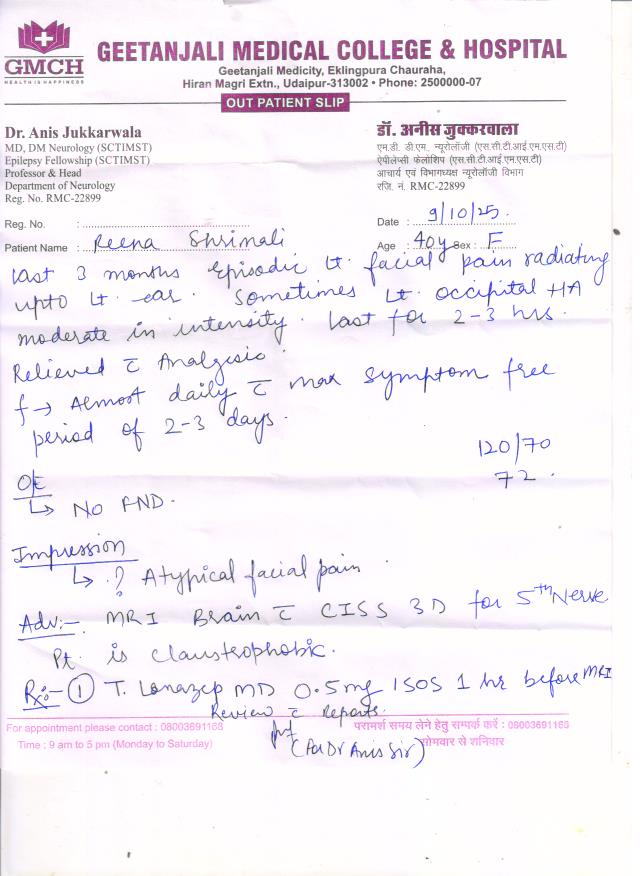 GMCH
HEALTH IS HAPPINESS
GEETANJALI MEDICAL COLLEGE & HOSPITAL
Geetanjali Medicity, Eklingpura Chauraha,
Hiran Magri Extn., Udaipur-313002 • Phone: 2500000-07
OUT PATIENT SLIP
Dr. Anis Jukkarwala
MD, DM Neurology (SCTIMST)
Epilepsy Fellowship (SCTIMST)
Professor & Head
Department of Neurology
Reg. No. RMC-22899
डॉ. अनीस जुक्करवाला
एम.डी. डी.एम. न्यूरोलॉजी (एस.सी.टी.आई.एम.एस.टी)
ऐपीलेप्सी फेलोशिप (एस.सी.टी.आई.एम.एस.टी)
आचार्य एवं विभागध्यक्ष न्यूरोलॉजी विभाग
रजि. नं. RMC-22899
Reg. No. :
Date : 9/10/25.
Patient Name : Reena Shrimali
Age : 40y Sex : F
last 3 months Episodic Lt. facial pain radiating
upto Lt. ear. Sometimes Lt. occipital HA
moderate in intensity. last for 2-3 hrs.
Relieved c̄ Analgesic.
f → Almost daily c̄ max symptom free
period of 2-3 days.
120/70
72.
O/E
↳ No FND.
Impression
↳ ? Atypical facial pain.
Adv:- MRI Brain c̄ CISS 3D for 5th Nerve
Pt. is claustrophobic.
Rx:- ① T. Lonazep MD 0.5mg 1SOS 1 hr before MRI
Review c̄ Reports.
(For Dr Anis Sir)
For appointment please contact : 08003691168
Time : 9 am to 5 pm (Monday to Saturday)
परामर्श समय लेने हेतु सम्पर्क करें : 08003691168
सोमवार से शनिवार